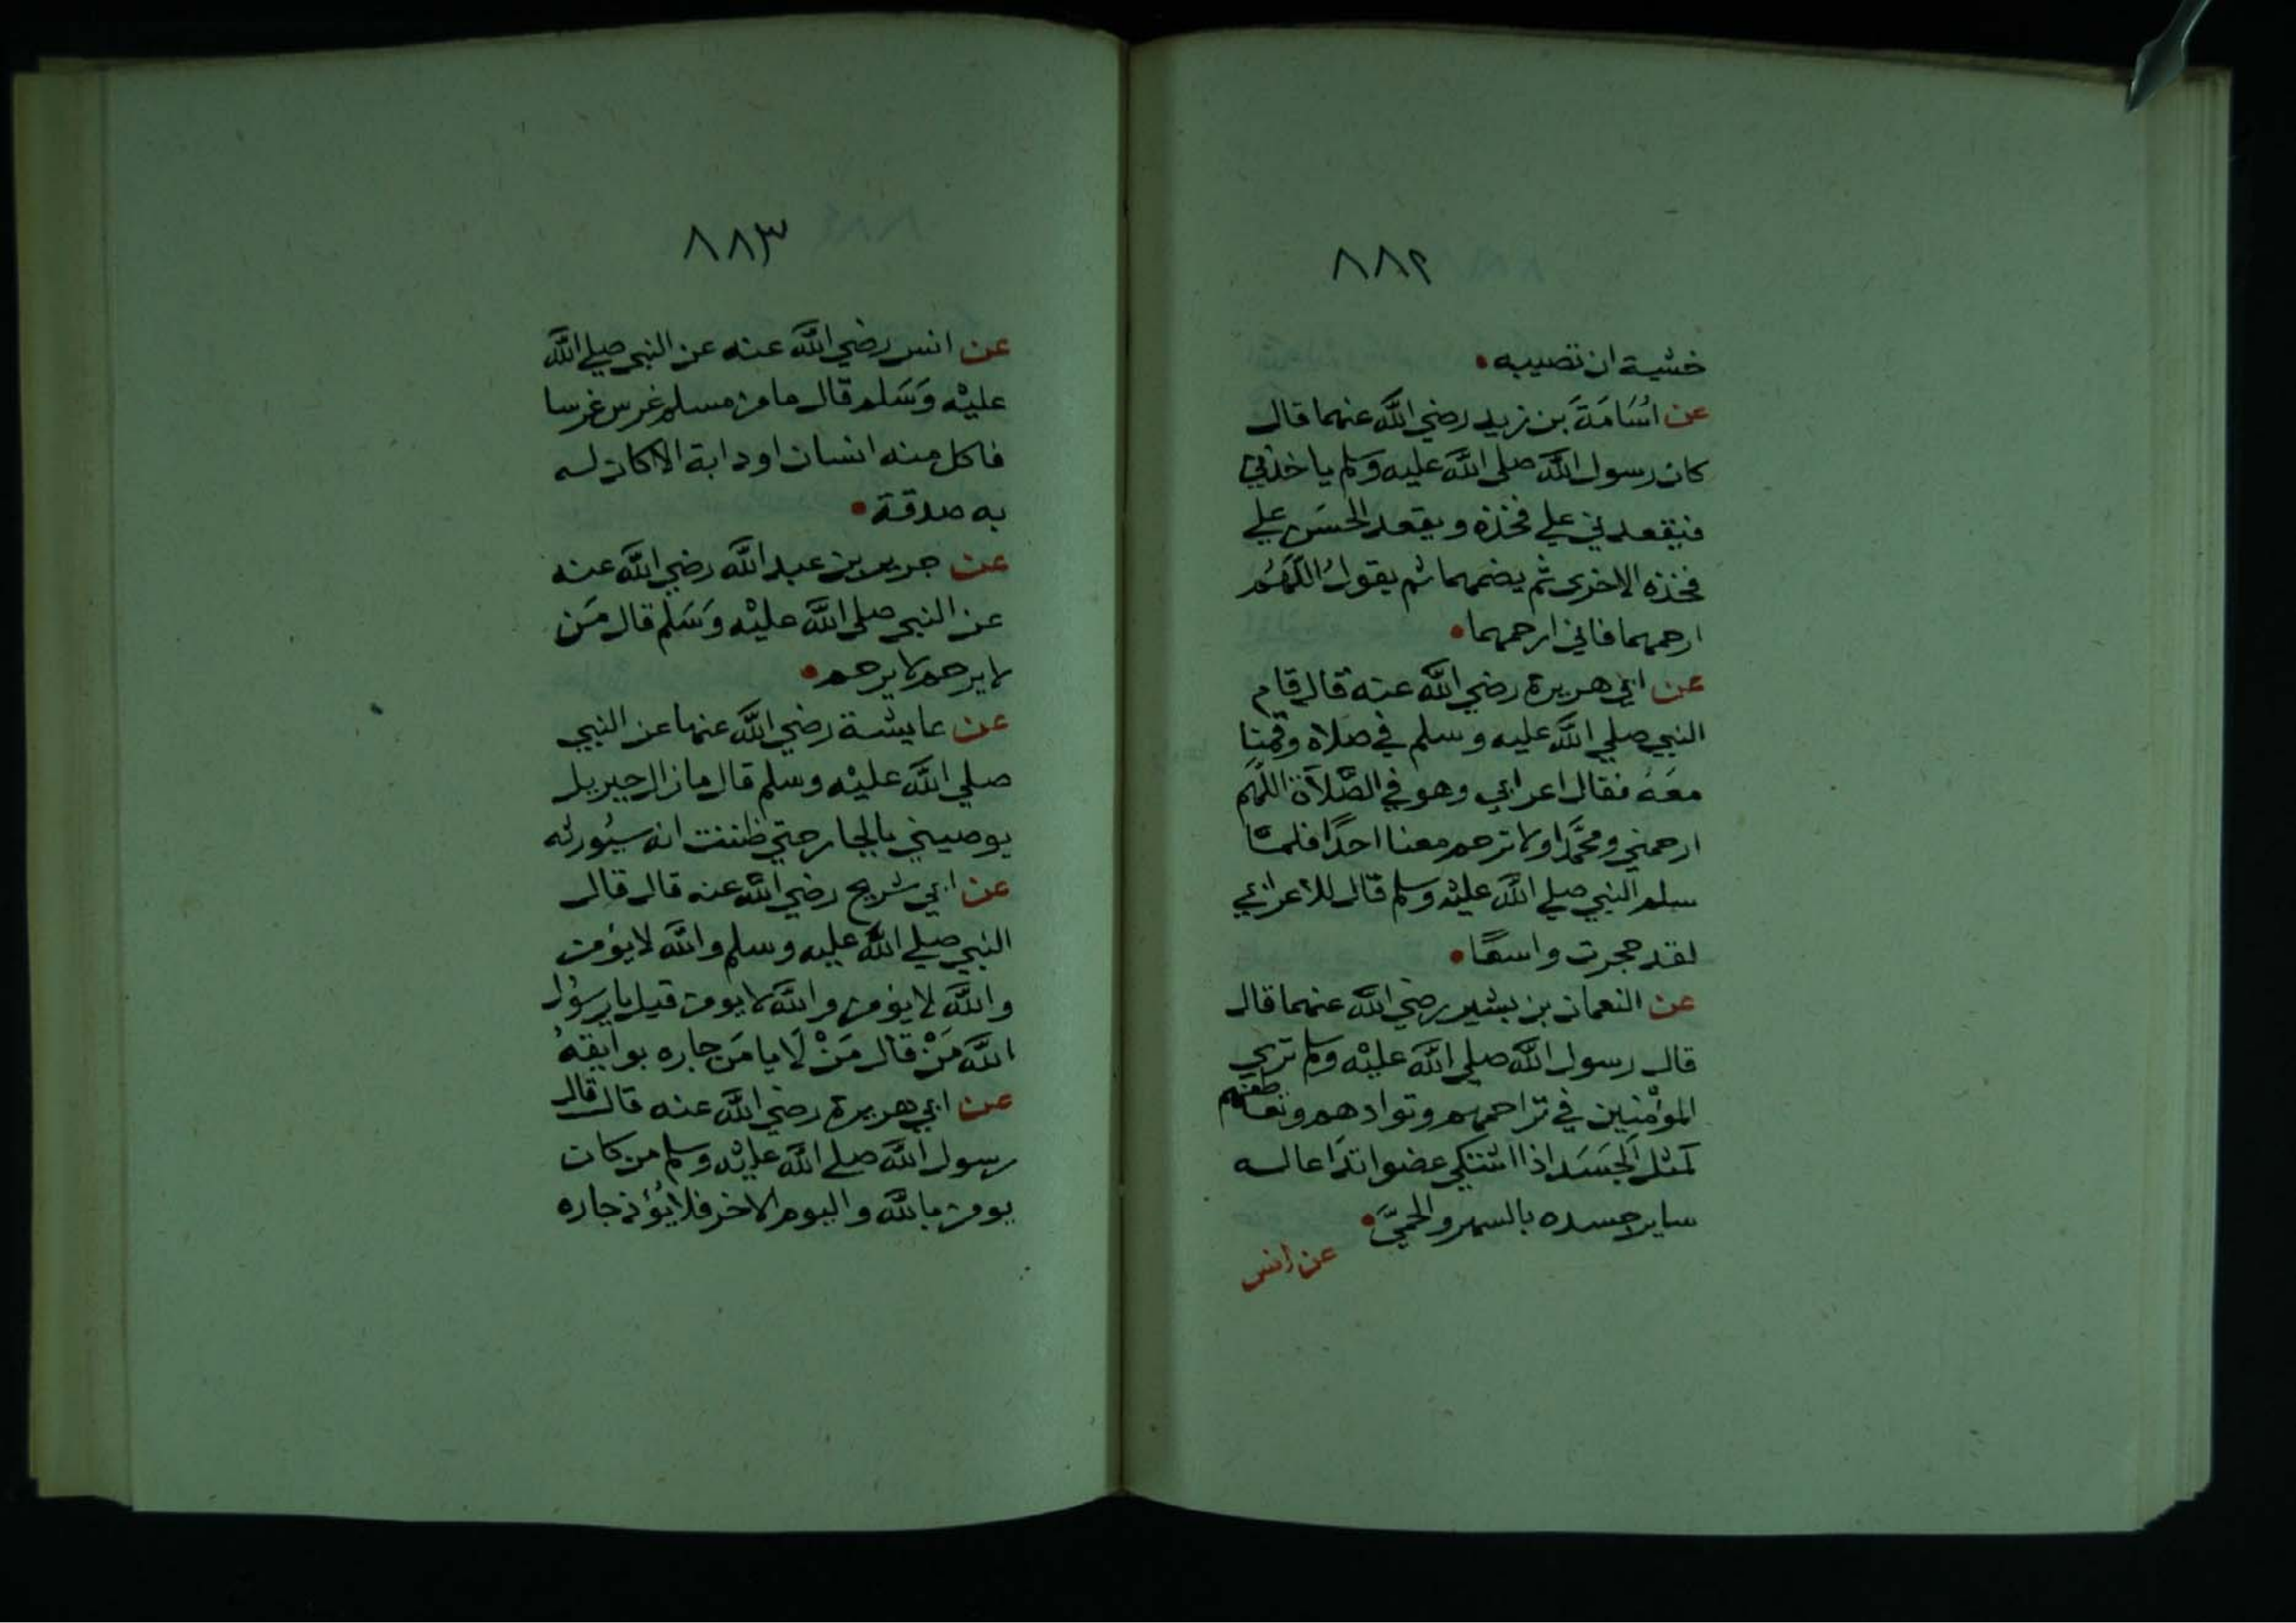 ٨٨٢
خشية ان تصيبه •
عن اسَامَةَ بن زيد رضي اللَّه عنهما قال
كان رسول اللَّه صلى اللَّه عليه وسلم ياخذني
فيقعدني علي فخذه ويقعد الحسَن علي
فخذه الاخرى ثم يضمهما ثم يقولُ اللَّهُم
ارحمهما فاني ارحمهما •
عن ابي هريرة رضي اللَّه عنه قال قام
النبي صلي اللَّه عليه وسلم في صلاة وقمنا
معَهُ فقال اعرابي وهو في الصَّلاَة اللَّهم
ارحمني ومحَّمدًا ولا ترحم معنا احدًا فلمَّا
سلم النبي صلي اللَّه عليْه وسلم قال للاعرابي
لقد حجرت واسعًا •
عن النعمان بن بشير رضي اللَّه عنهما قال
قال رسول اللَّه صلي اللَّه عليْه وسلم تري
المؤمنين في تراحمهم وتوادهم وتعاطفهم
كمثل الجَسَد اذا اشتكي عضوا تدَاعا له
ساير جسده بالسهر والحميَّ •
عن انس
٨٨٣
عن انس رضي اللَّه عنه عن النبي صلي اللَّه
عليْه وَسَلم قال ما من مسلم غرس غرسا
فاكل منه انسان او دابة الا كان له
به صدقة •
عن جرير بن عبد اللَّه رضي اللَّه عنه
عن النبي صلى اللَّه عليْه وَسَلم قال مَن
لا يرحم لا يرحم •
عن عايشة رضي اللَّه عنها عن النبي
صلي اللَّه عليْه وسلم قال ما زال جبريل
يوصيني بالجار حتي ظننت انه سيُورثه
عن ابي شريح رضي اللَّه عنه قال قال
النبي صلي اللَّه عليه وسلم واللَّه لا يؤمن
واللَّه لا يؤمن واللَّه لا يومن قيل يا رسُول
اللَّه مَنْ قال مَنْ لَا يامَن جاره بوايقهُ
عن ابي هريرة رضي اللَّه عنه قال قال
رسول اللَّه صلي اللَّه عليْه وسلم من كان
يومن باللَّه واليوم الاخر فلا يُؤذ جاره